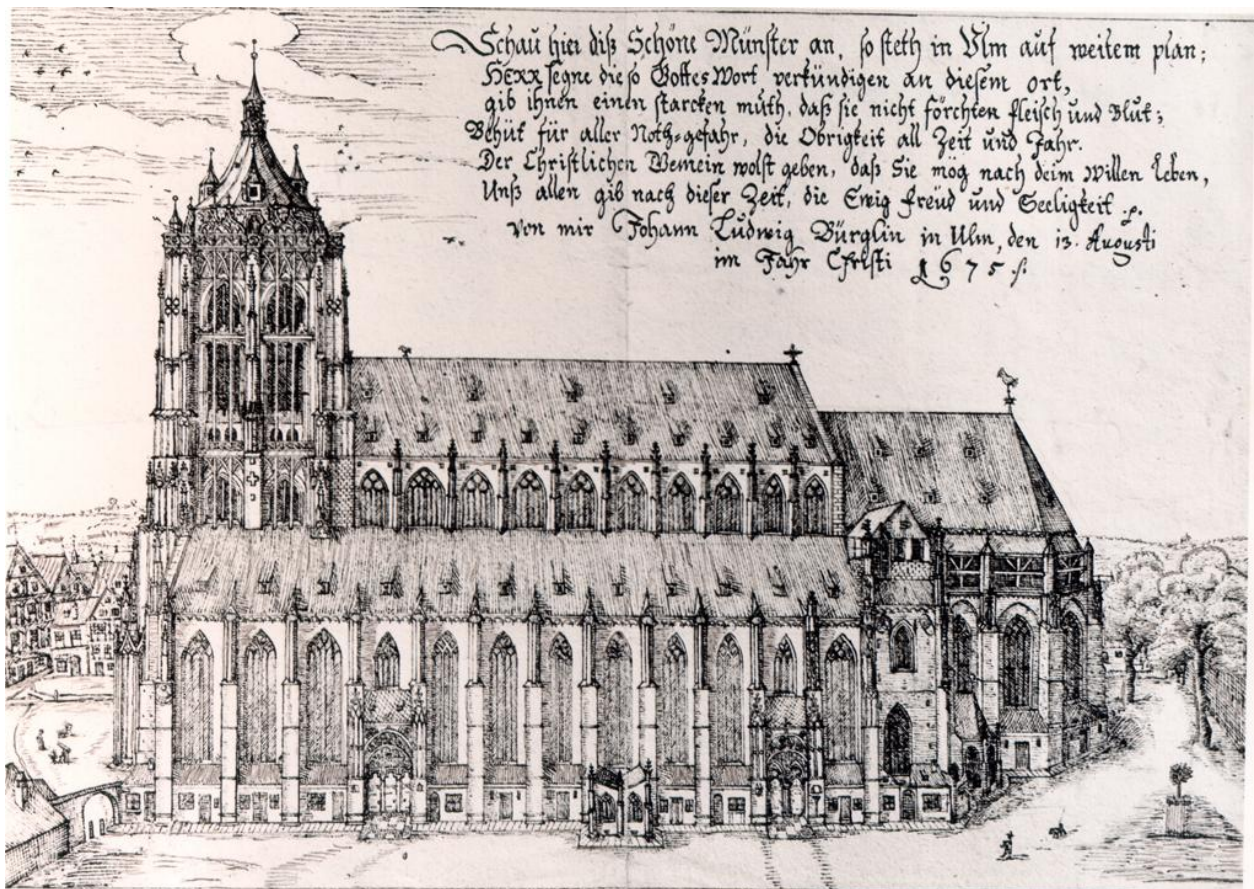 Schau hier diß Schöne Münster an, so steth in Ulm auf weitem plan;
HERR segne die so Gottes Wort verkündigen an diesem ort,
gib ihnen einen starcken muth, daß sie nicht förchten fleisch und Blut;
Behüt für aller Noth-gefahr, die Obrigkeit all Zeit und Jahr.
Der Christlichen Gemein wolst geben, daß Sie mög nach deim willen Leben,
Unß allen gib nach dieser Zeit, die Ewig freüd und Seeligkeit.
von mir Johann Ludwig Bürglin in Ulm, den 13. Augusti
im Jahr Christi 1675